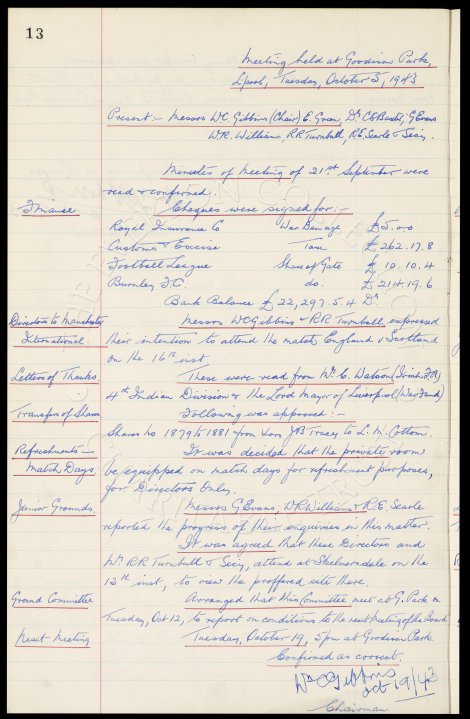 13
Meeting held at Goodison Park,
L'pool, Tuesday, October 5, 1943
Present:- Messrs W.C. Gibbins (Chair) E. Green, Dr C.E. Baxter, G Evans
W.R. Williams, R.R. Turnbull, R.E. Searle & Secy.
Minutes of meeting of 21st September were
read & confirmed.
Finance
Cheques were signed for:-
Royal Insurance Co War Damage £5.0.0
Customs & Excise Tax £262.17.8
Football League Share of Gate £10.10.4
Burnley F.C. do. £214.19.6
Bank Balance £22,297.5.4 Dr
Directors to Manchester
International
Messrs W.C. Gibbins & R.R. Turnbull expressed
their intention to attend the match England v Scotland
on the 16th inst
Letters of Thanks
These were read from Mr C. Watson (Irish F.A.)
4th Indian Division & the Lord Mayor of Liverpool (War Fund)
Transfer of Shares
Following was approved:-
Shares No 1879 to 1881 from J.B. Tracey to L. M. Cottom.
Refreshments -
Match Days
It was decided that the private room
be equipped on match days for refreshment purposes,
for Directors Only.
Junior Grounds
Messrs G. Evans, W.R. Williams & R.E. Searle
reported the progress of their enquiries in this matter.
It was agreed that these Directors and
Mr R.R. Turnbull & Secy, attend at on the
13th inst, to view the proffered site there.
Ground Committee
Arranged that this Committee meet at G. Park on
Tuesday, Oct 12, to report on conditions to the next meeting of the Board
Next Meeting
Tuesday, October 19, 5pm at Goodison Park.
Confirmed as correct.
W C Gibbins
Oct 19/43
Chairman